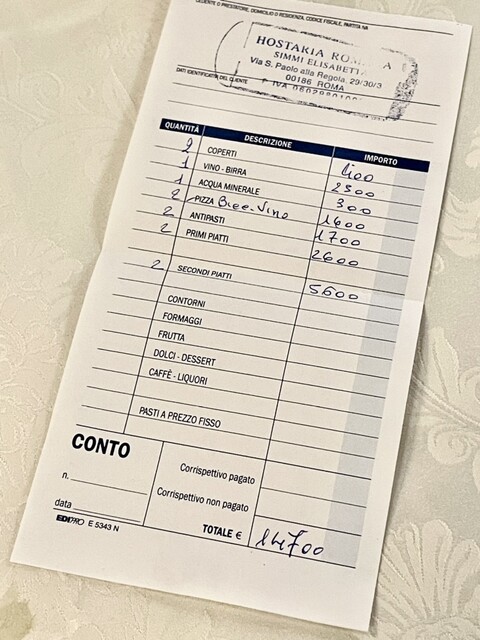 CLIENTE O PRESTATORE, DOMICILIO O RESIDENZA, CODICE FISCALE, PARTITA IVA
HOSTARIA RO
SIMMI ELISABETTA
Via S. Paolo alla Regola, 29/30/3
00186 ROMA
DATI IDENTIFICATIVI DEL CLIENTE
QUANTITÀ DESCRIZIONE IMPORTO
2 COPERTI 400
1 VINO - BIRRA 2500
1 ACQUA MINERALE 300
2 PIZZA Bicc. Vino 1600
2 ANTIPASTI 1700
2 PRIMI PIATTI 2600
2 SECONDI PIATTI 5600
CONTORNI
FORMAGGI
FRUTTA
DOLCI - DESSERT
CAFFÈ - LIQUORI
PASTI A PREZZO FISSO
CONTO
n.
data
Corrispettivo pagato
Corrispettivo non pagato
TOTALE € 14700
EDIPRO E 5343 N